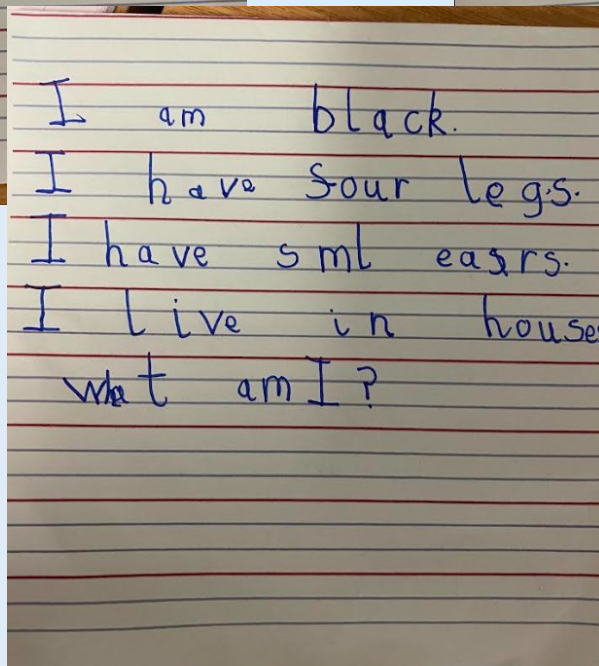 I am black.
I have four legs.
I have sml easrs.
I live in house
what am I?